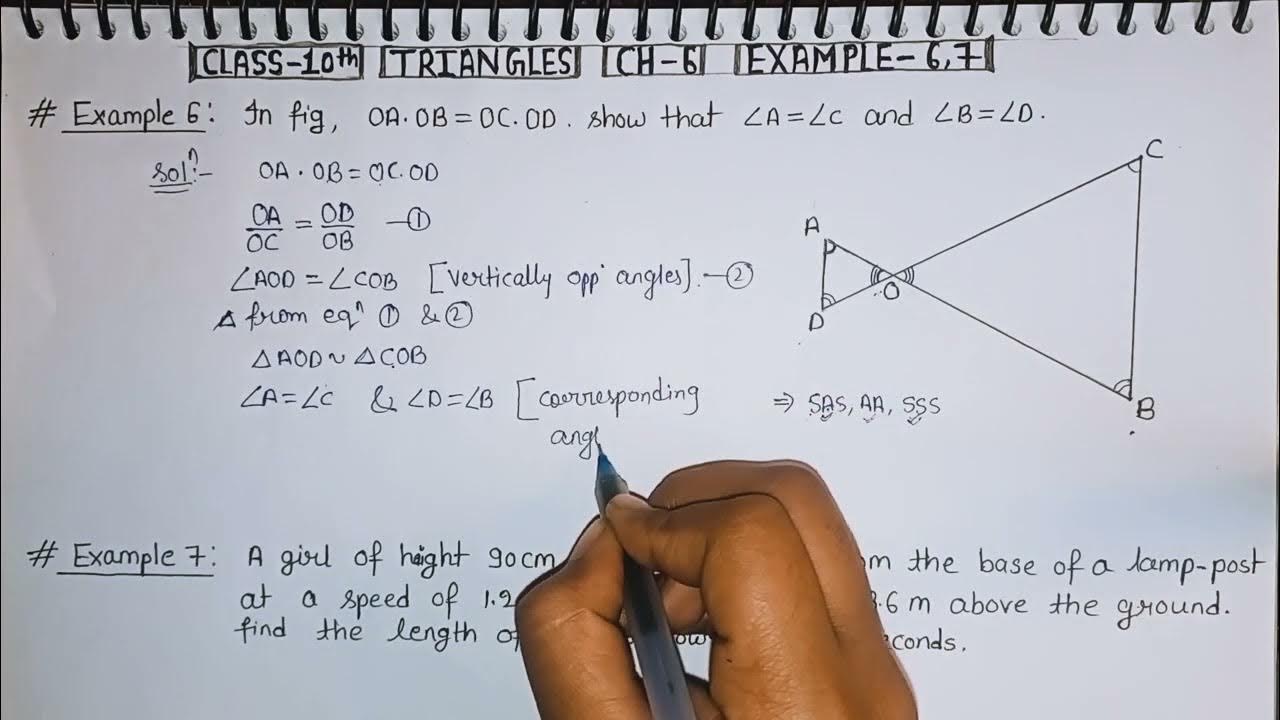 CLASS-10th TRIANGLES CH-6 EXAMPLE-6,7
# Example 6: In fig, OA·OB=OC·OD. show that ∠A=∠C and ∠B=∠D.
Solⁿ:- OA·OB=OC·OD
OA/OC = OD/OB —①
∠AOD = ∠COB [vertically opp· angles].—②
△ from eqⁿ ① & ②
△AOD ~ △COB
∠A=∠C & ∠D=∠B [corresponding
angl
⇒ SAS, AA, SSS
A
D
O
C
B
# Example 7: A girl of height 90cm the base of a lamp-post
at a speed of 1.2 .6 m above the ground.
find the length of conds.